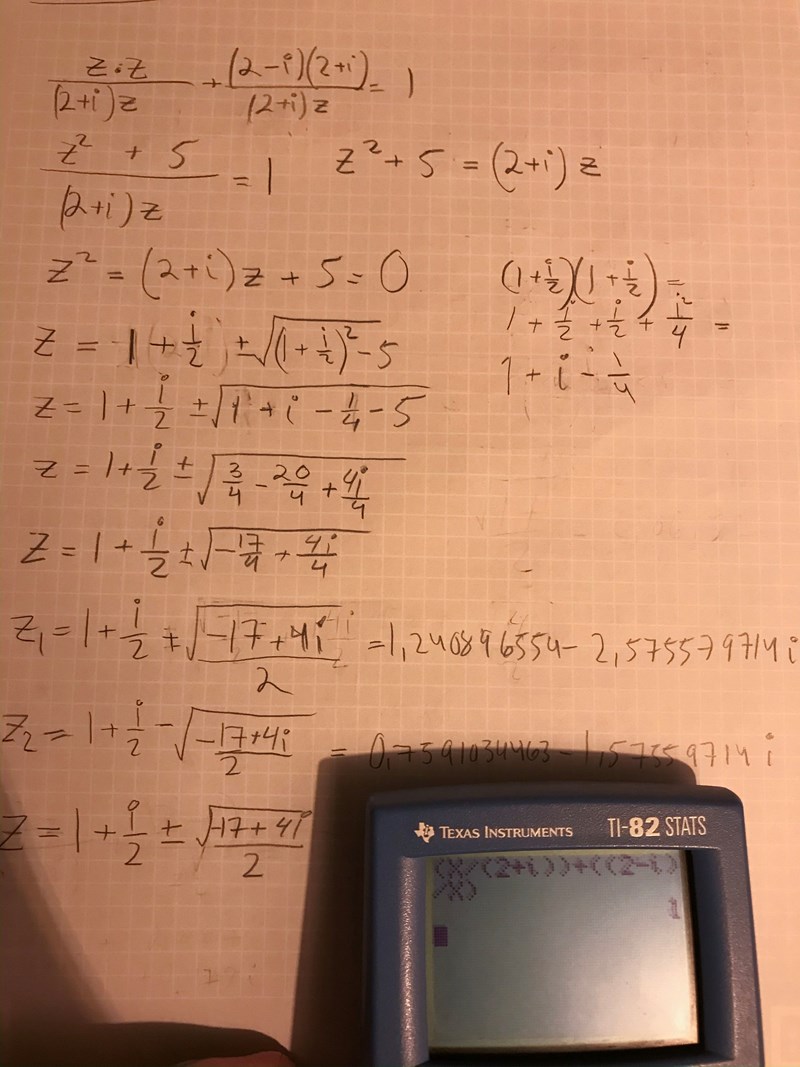 z·z/(2+i)z + (2-i)(2+i)/(2+i)z = 1
z² + 5/(2+i)z = 1 z² + 5 = (2+i) z
z² = (2+i)z + 5 = 0
(1+i/2)(1+i/2) =
1 + i/2 + i/2 + i²/4 =
1 + i - 1/4
z = 1 + i/2 ± √((1+i/2)² - 5)
z = 1 + i/2 ± √(1 + i - 1/4 - 5)
z = 1 + i/2 ± √(3/4 - 20/4 + 4i/4)
z = 1 + i/2 ± √(-17/4 + 4i/4)
z₁ = 1 + i/2 + √(-17+4i)/2 = 1,240896554 - 2,575579714 i
z₂ = 1 + i/2 - √(-17+4i)/2 = 0,7591034463 - 1,57559714 i
z = 1 + i/2 ± √(-17+4i)/2
TEXAS INSTRUMENTS TI-82 STATS
(X/(2+i))+((2-i)
/X)
1